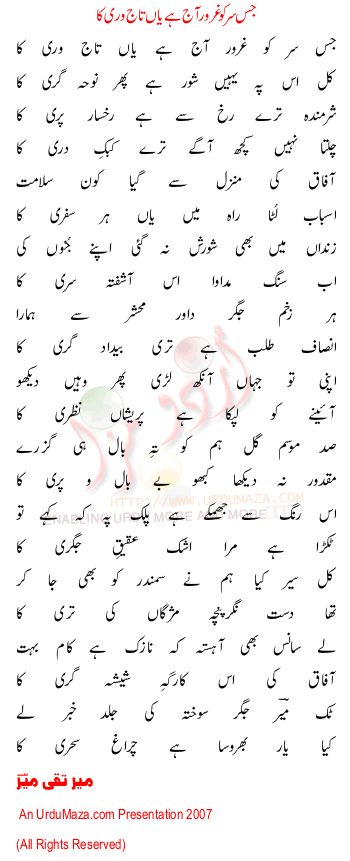 جس سر کو غرور آج ہے یاں تاج وری کا
جس سر کو غرور آج ہے یاں تاج وری کا
کل اس پہ یہیں شور ہے پھر نوحہ گری کا
شرمندہ ترے رخ سے ہے رخسار پری کا
چلتا نہیں کچھ آگے ترے کبکِ دری کا
آفاق کی منزل سے گیا کون سلامت
اسباب لٹا راہ میں یاں ہر سفری کا
زنداں میں بھی شورش نہ گئی اپنے جُنوں کی
اب سنگ مداوا اس آشفتہ سری کا
ہر زخم جگر داور محشر سے ہمارا
انصاف طلب ہے تری بیداد گری کا
اپنی تو جہاں آنکھ لڑی پھر وہیں دیکھو
آئینے کو لپکا ہے پریشاں نظری کا
صد موسم گل ہم کو تہِ بال ہی گزرے
مقدور نہ دیکھا کبھو بے بال و پری کا
اس رنگ سے جھمکے ہے پلک پہ کہ کہے تو
ٹکڑا ہے مرا اشک عقیقِ جگری کا
کل سیر کیا ہم نے سمندر کو بھی جا کر
تھا دست نگر پنجہ مژگاں کی تری کا
لے سانس بھی آہستہ کہ نازک ہے کام بہت
آفاق کی اس کارگہِ شیشہ گری کا
ٹک میرؔ جگر سوختہ کی جلد خبر لے
کیا یار بھروسا ہے چراغِ سحری کا
میر تقی میرؔ
An UrduMaza.com Presentation 2007
(All Rights Reserved)
اُردو مزا
HTTP://WWW.URDUMAZA.COM
ENABLING URDU MORE AND MORE